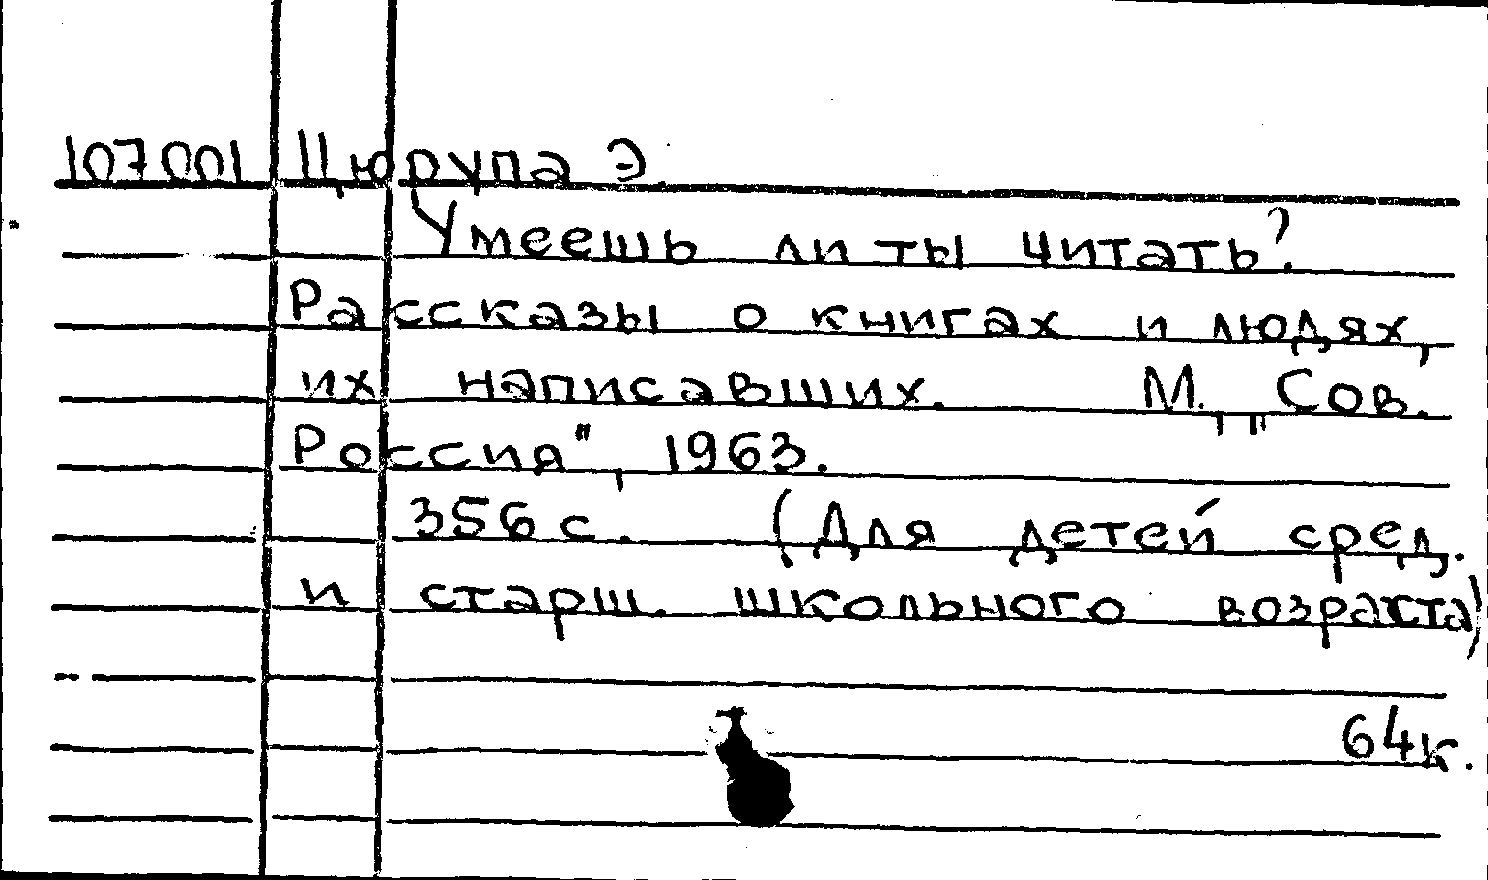 107001 Цюрупа Э
Умеешь ли ты читать?
Рассказы о книгах и людях,
их написавших. М., „Сов.
Россия", 1963.
356 с. (Для детей сред.
и старш. школьного возраста)
64к.